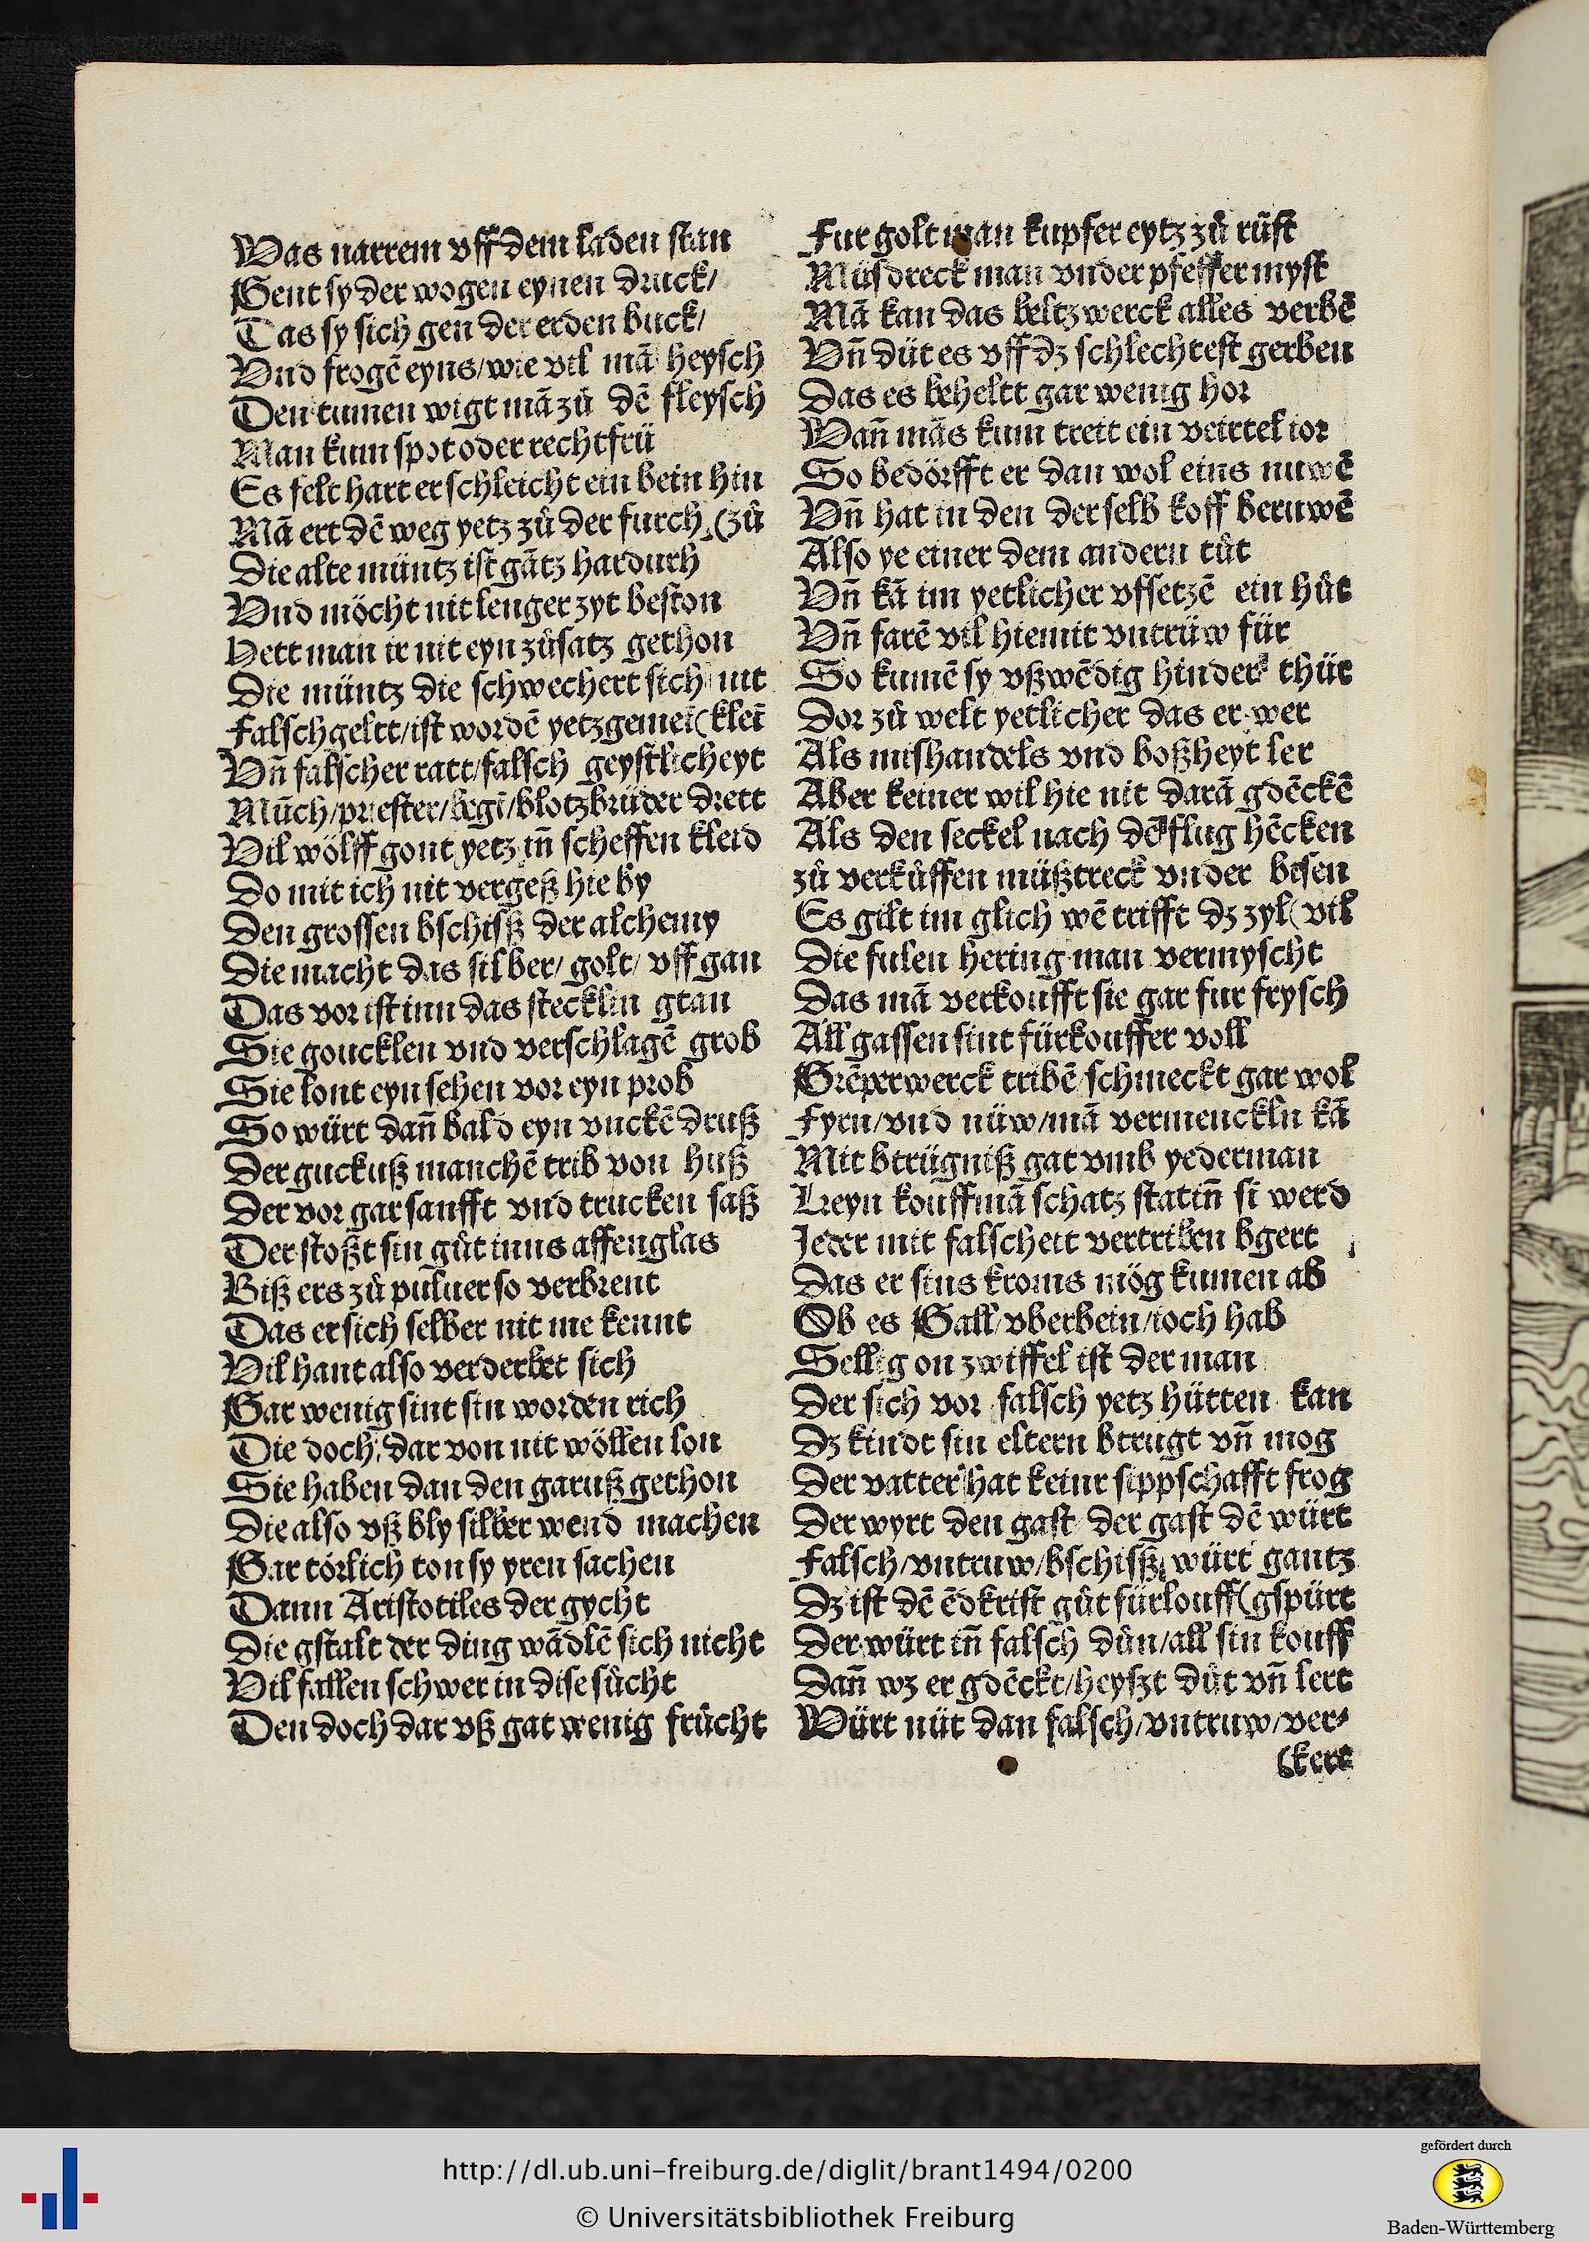 Was narrem vff dem laden stan
Gent sy der wogen eynen druck/
Das sy sich gen der erden buck/
Vnd frogē eyns/wie vil mā heysch
Den tumen wigt mā zů dē fleysch
Man kum spot oder recht frü
Es felt hart er schleicht ein bein hin
Mā ert dē weg yetz zů der furch (zů
Die alte müntz ist gātz hardurh
Vnd möcht nit lenger zyt beston
Hett man ir nit eyn zůsatz gethon
Die müntz die schwechert sich nit
Falsch geltt/ist wordē yetz gemei (kleī
Vn̄ falscher ratt/falsch geystlicheyt
Mūch/priester/begī/blotzbrüder drett
Vil wölff gont yetz in̄ scheffen kleid
Do mit ich nit vergeß hie by
Den grossen bschisß der alchemy
Die macht das silber/golt/vff gan
Das vor ist inn das stecklin gtan
Sie goucklen vnd verschlagē grob
Sie lont eyn sehen vor eyn prob
So würt dan̄ bald eyn vnckē druß
Der guckuß manchē trib von huß
Der vor gar sanfft vnd trucken saß
Der stoßt sin gůt inns affenglas
Biß ers zů puluer so verbrent
Das er sich selber nit me kennt
Vil hant also verderbet sich
Gar wenig sint sin worden rich
Die doch dar von nit wöllen lon
Sie haben dan den garuß gethon
Die also vß bly silber wend machen
Gar törlich ton sy yren sachen
Dann Aristotiles der gycht
Die gstalt der ding wādlē sich nicht
Vil fallen schwer in dise sůcht
Den doch dar vß gat wenig frůcht
Fur golt man kupfer eytz zů rūst
Müsdreck man vnder pfeffer myst
Mā kan das beltzwerck alles verbē
Vn̄ düt es vff dz schlechtest gerben
Das es beheltt gar wenig hor
Wan̄ mās kum treit ein veirtel ior
So bedörfft er dan wol eins nuwē
Vn̄ hat in den derselb koff beruwē
Also ye einer dem andern tůt
Vn̄ kā im yetlicher vffsetzē ein hůt
Vn̄ farē vil hiemit vntrüw für
So kumē sy vßwēdig hinder thür
Dor zů welt yetlicher das er wer
Als mishandels vnd boßheyt ler
Aber keiner wil hie nit darā gdēckē
Als den seckel nach dē pflug hēcken
zů verkůffen müßtreck vnder besen
Es gilt im glich wē trifft dz zyl (vil
Die fulen hering man vermyscht
Das mā verkoufft sie gar fur frysch
All gassen sint fürkouffer voll
Grēperwerck tribē schmeckt gar wol
Fyrn/vnd nüw/mā vermenckln kā
Mit btrügniß gat vmb yederman
Keyn kouffmā schatz statin̄ si werd
Jeder mit falscheit vertriben bgert
Das er sins kroms mög kumen ab
Ob es Gall/vberbein/ioch hab
Sellig on zwiffel ist der man
Der sich vor falsch yetz hütten kan
Dz kindt sin eltern btrugt vn̄ mog
Der vatter hat keinr sippschafft frog
Der wyrt den gast der gast dē würt
Falsch/vntruw/bschisß würt gantz
Dz ist dē ēdkrist gůt fürlouff (gspürt
Der würt in̄ falsch důn/all sin kouff
Dan̄ wz er gdēckt/heyßt důt vn̄ lert
Würt nüt dan falsch/vntruw/ver⸗
(kert
http://dl.ub.uni-freiburg.de/diglit/brant1494/0200
© Universitätsbibliothek Freiburg
gefördert durch
Baden-Württemberg